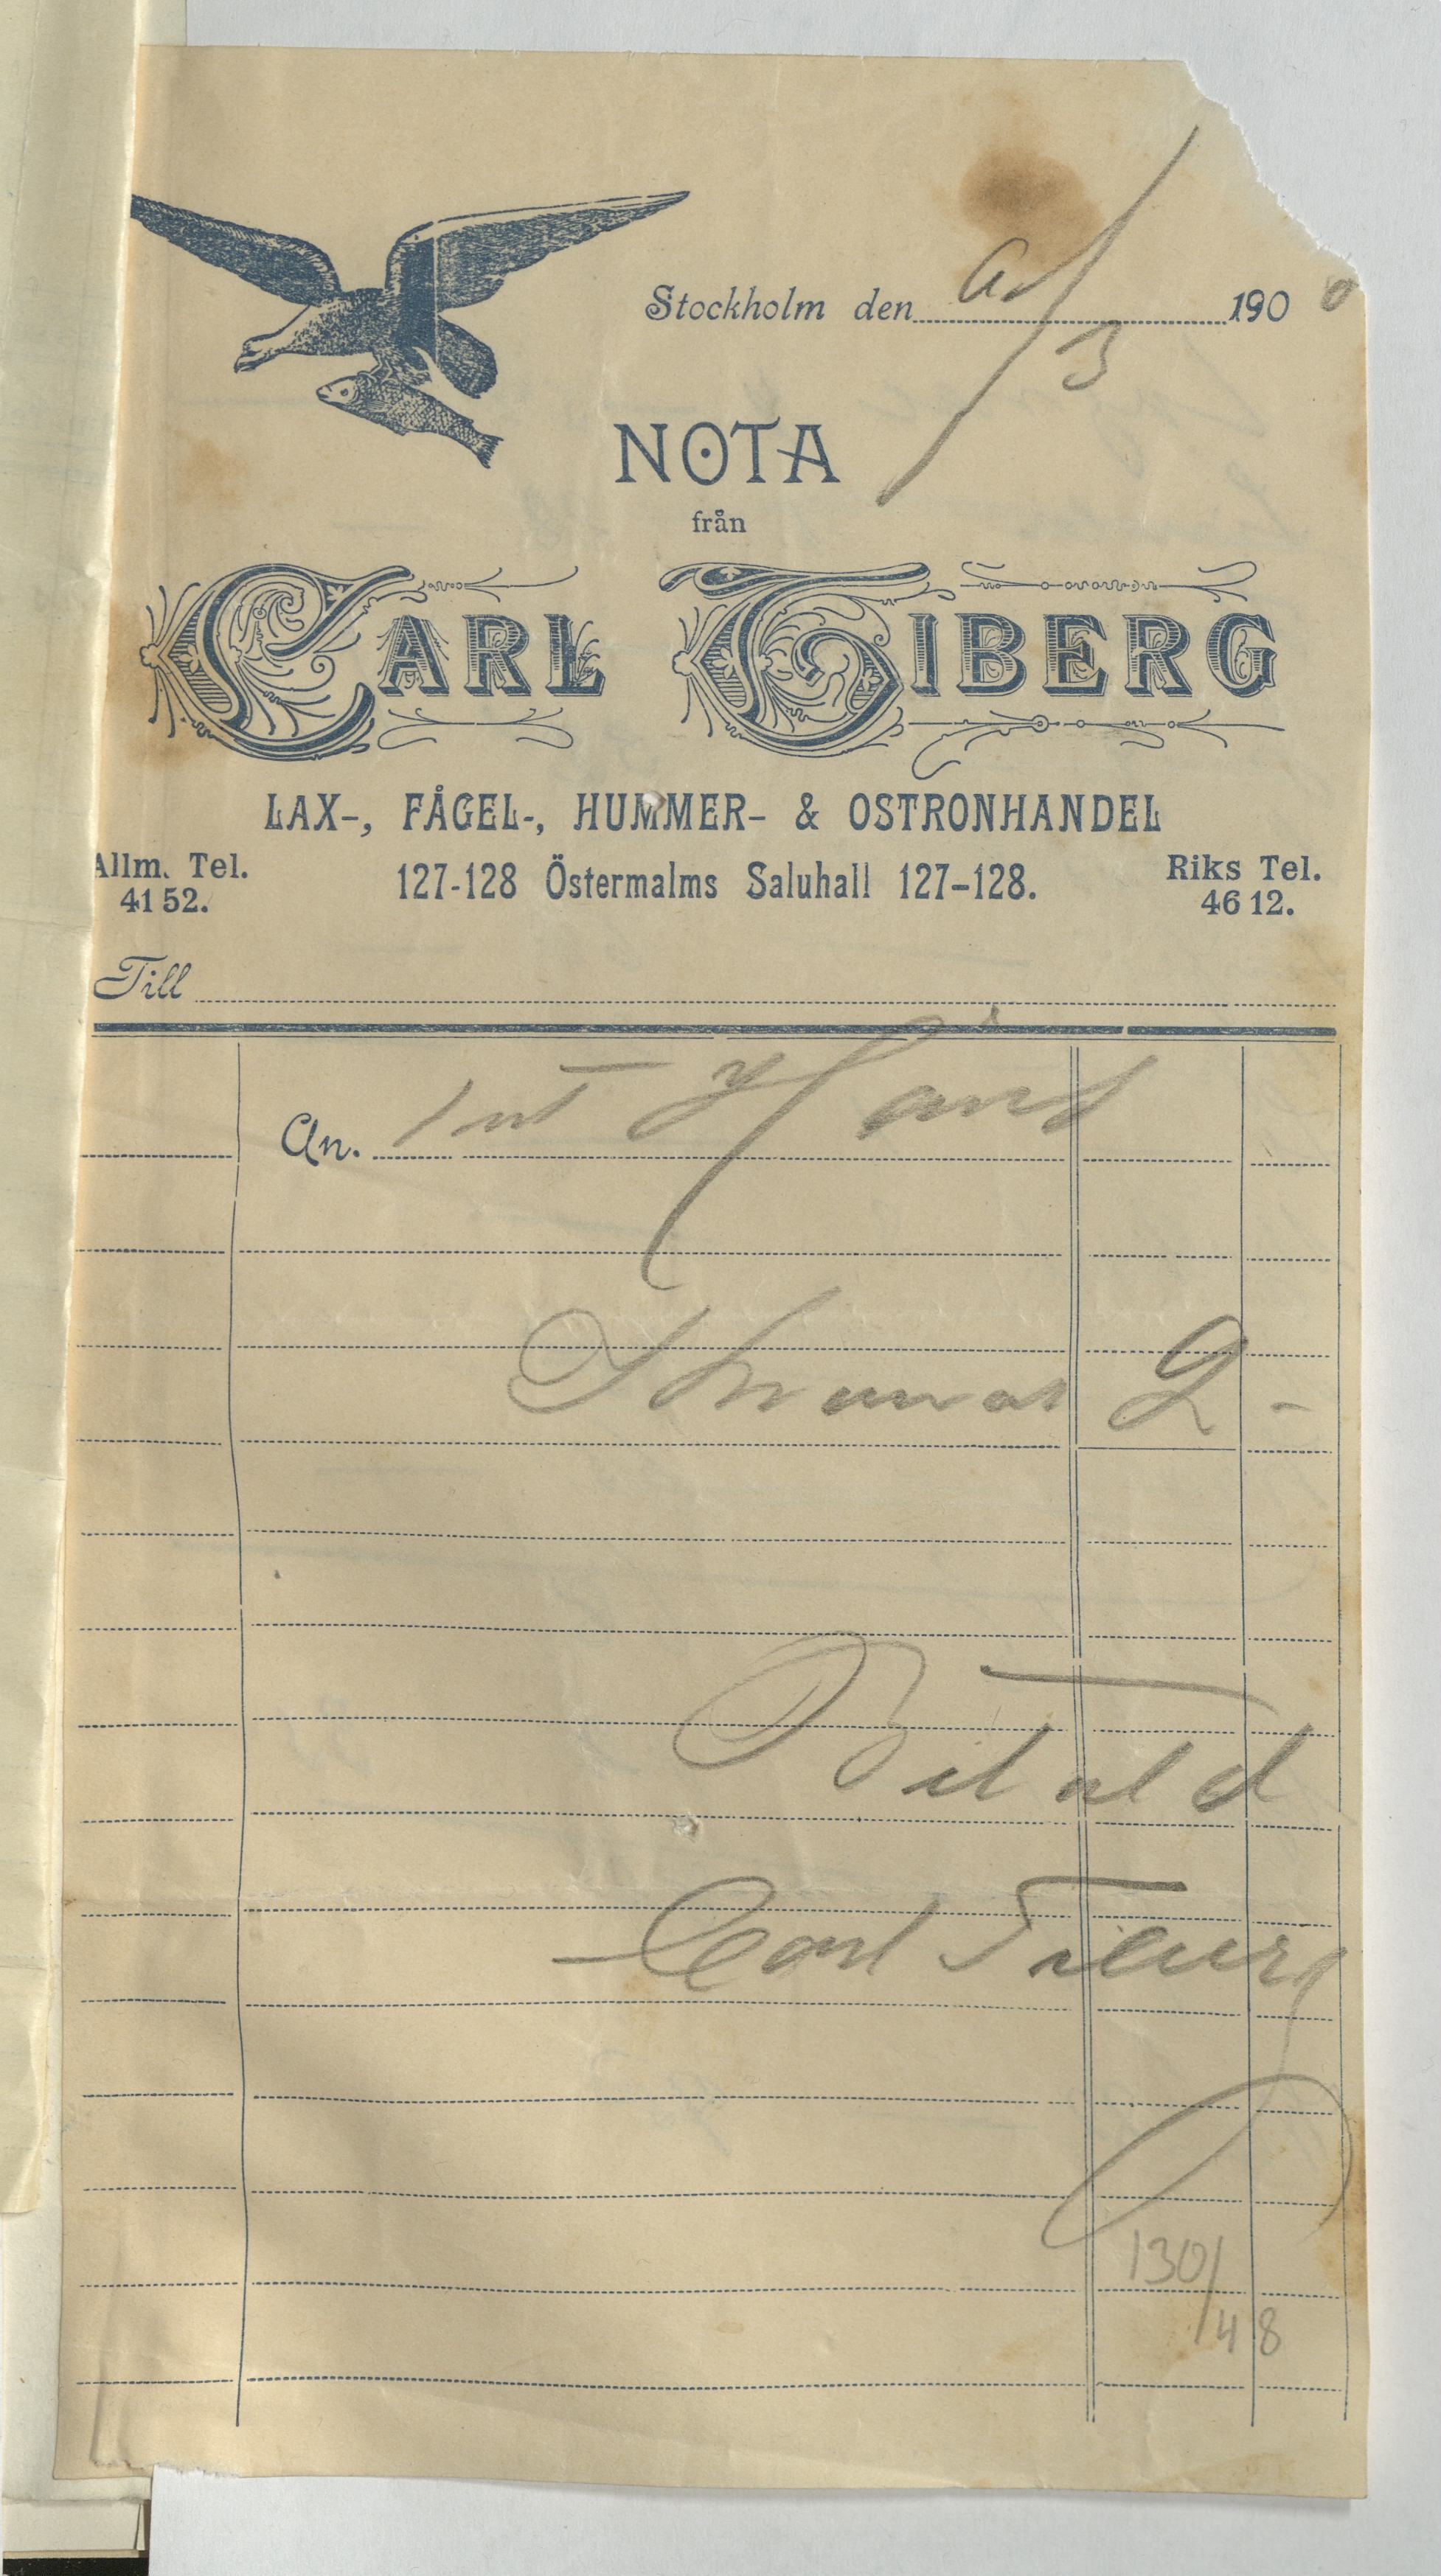 Stockholm den 1900
3
NOTA
från
CARL TIBERG
LAX-, FÅGEL-, HUMMER- & OSTRONHANDEL
Allm. Tel. 127-128 Östermalms Saluhall 127–128. Riks Tel.
4152. 4612.
Till
An. 1 st
Kronor 2 -
Betald
Carl Tiberg
130/48